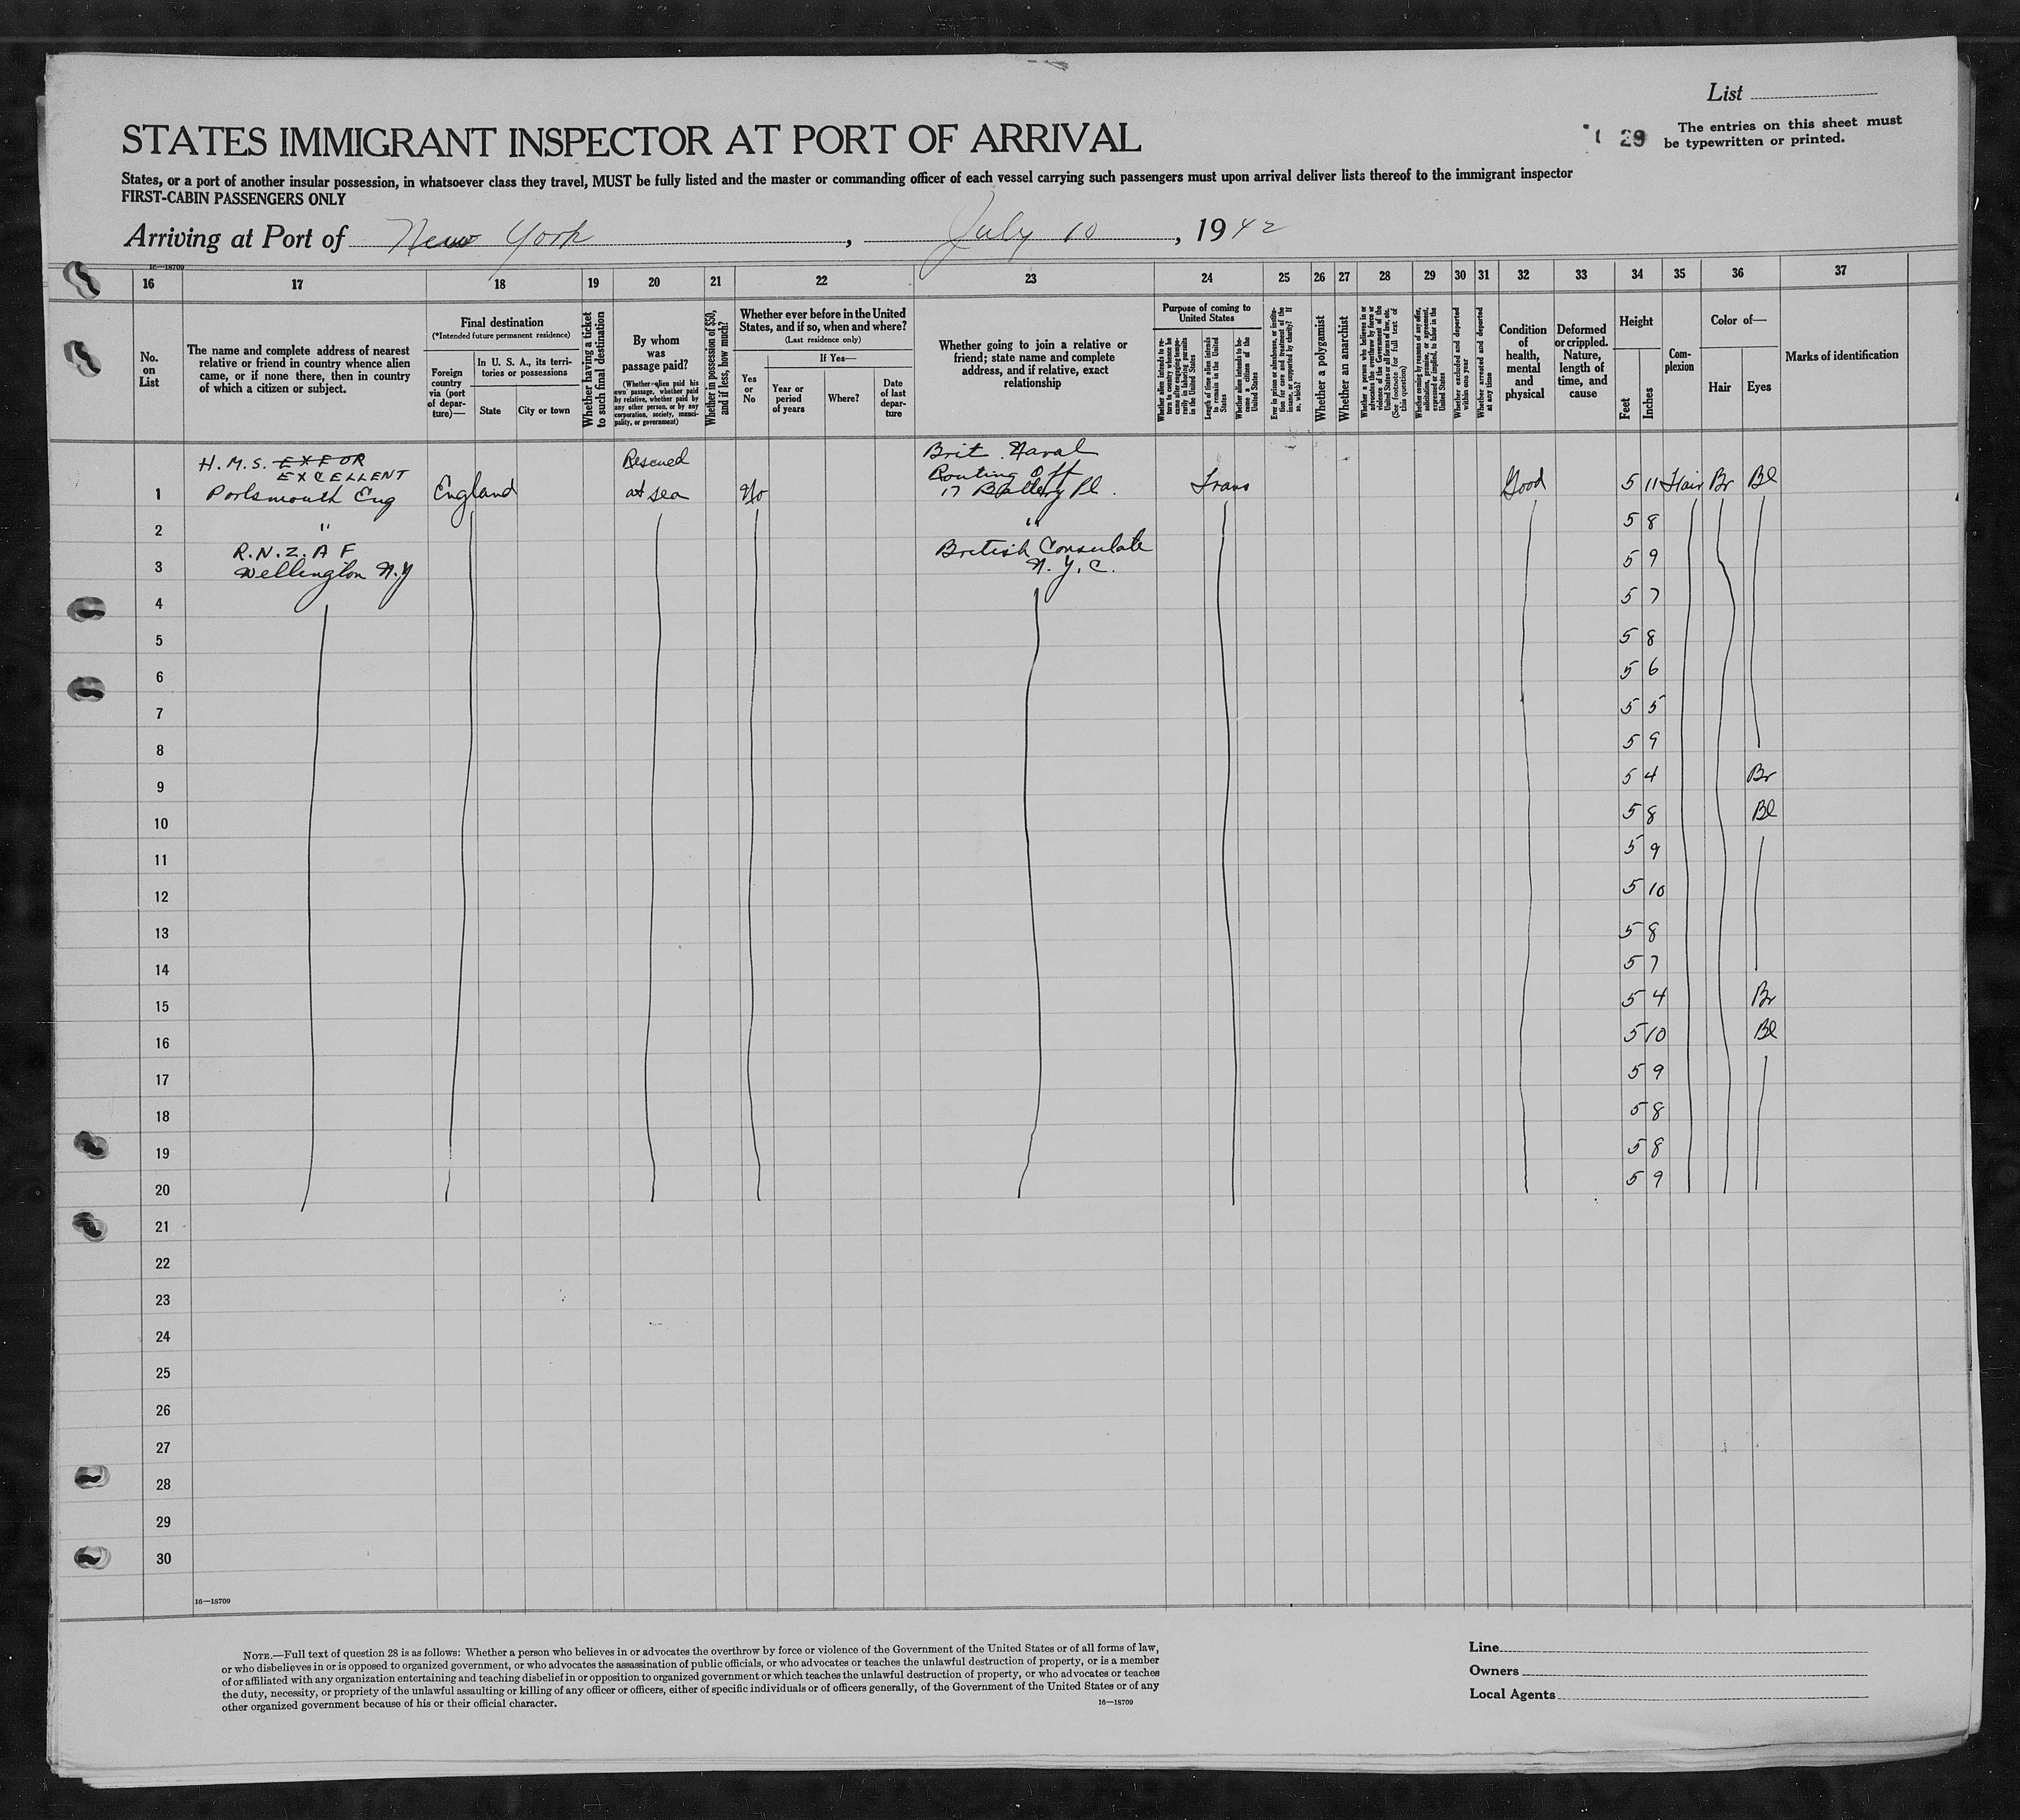 List
STATES IMMIGRANT INSPECTOR AT PORT OF ARRIVAL
29
The entries on this sheet must
be typewritten or printed.
States, or a port of another insular possession, in whatsoever class they travel, MUST be fully listed and the master or commanding officer of each vessel carrying such passengers must upon arrival deliver lists thereof to the immigrant inspector
FIRST-CABIN PASSENGERS ONLY
Arriving at Port of New York, July 10, 1942
16—18709
16 17 18 19 20 21 22 23 24 25 26 27 28 29 30 31 32 33 34 35 36 37
No.
on
List
The name and complete address of nearest
relative or friend in country whence alien
came, or if none there, then in country
of which a citizen or subject.
Final destination
(*Intended future permanent residence)
Foreign
country
via (port
of depar-
ture)—
In U. S. A., its terri-
tories or possessions
State
City or town
Whether having a ticket
to such final destination
By whom
was
passage paid?
(Whether alien paid his
own passage, whether paid
by relative, whether paid by
any other person, or by any
corporation, society, munici-
pality, or government)
Whether in possession of $50,
and if less, how much?
Whether ever before in the United
States, and if so, when and where?
(Last residence only)
Yes
or
No
If Yes—
Year or
period
of years
Where?
Date
of last
depar-
ture
Whether going to join a relative or
friend; state name and complete
address, and if relative, exact
relationship
Purpose of coming to
United States
Whether alien intends to re-
turn to country whence he
came after engaging tempo-
rarily in laboring pursuits
in the United States
Length of time alien intends
to remain in the United
States
Whether alien intends to be-
come a citizen of the
United States
Ever in prison or almshouse, or institu-
tion for care and treatment of the
insane, or supported by charity? If
so, which?
Whether a polygamist
Whether an anarchist
Whether a person who believes in or
advocates the overthrow by force or
violence of the Government of the
United States or all forms of law, etc.
(See footnote for full text of
this question)
Whether coming by reason of any offer,
solicitation, promise, or agreement,
expressed or implied, to labor in the
United States
Whether excluded and deported
within one year
Whether arrested and deported
at any time
Condition
of
health,
mental
and
physical
Deformed
or crippled.
Nature,
length of
time, and
cause
Height
Feet
Inches
Com-
plexion
Color of—
Hair
Eyes
Marks of identification
H.M.S. EXFOR Rescued Brit. Naval
EXCELLENT Routing Off
1 Portsmouth Eng England at sea No 17 Battery Pl. Trans Good 5 11 Fair Br Bl
2 " " 5 8
R.N.Z.A F British Consulate
3 Wellington N.Y N.Y.C. 5 9
4 5 7
5 5 8
6 5 6
7 5 5
8 5 9
9 5 4 Br
10 5 8 Bl
11 5 9
12 5 10
13 5 8
14 5 7
15 5 4 Br
16 5 10 Bl
17 5 9
18 5 8
19 5 8
20 5 9
21
22
23
24
25
26
27
28
29
30
16—18709
NOTE.—Full text of question 28 is as follows: Whether a person who believes in or advocates the overthrow by force or violence of the Government of the United States or of all forms of law,
or who disbelieves in or is opposed to organized government, or who advocates the assassination of public officials, or who advocates or teaches the unlawful destruction of property, or is a member
of or affiliated with any organization entertaining and teaching disbelief in or opposition to organized government or which teaches the unlawful destruction of property, or who advocates or teaches
the duty, necessity, or propriety of the unlawful assaulting or killing of any officer or officers, either of specific individuals or of officers generally, of the Government of the United States or of any
other organized government because of his or their official character.
16—18709
Line
Owners
Local Agents